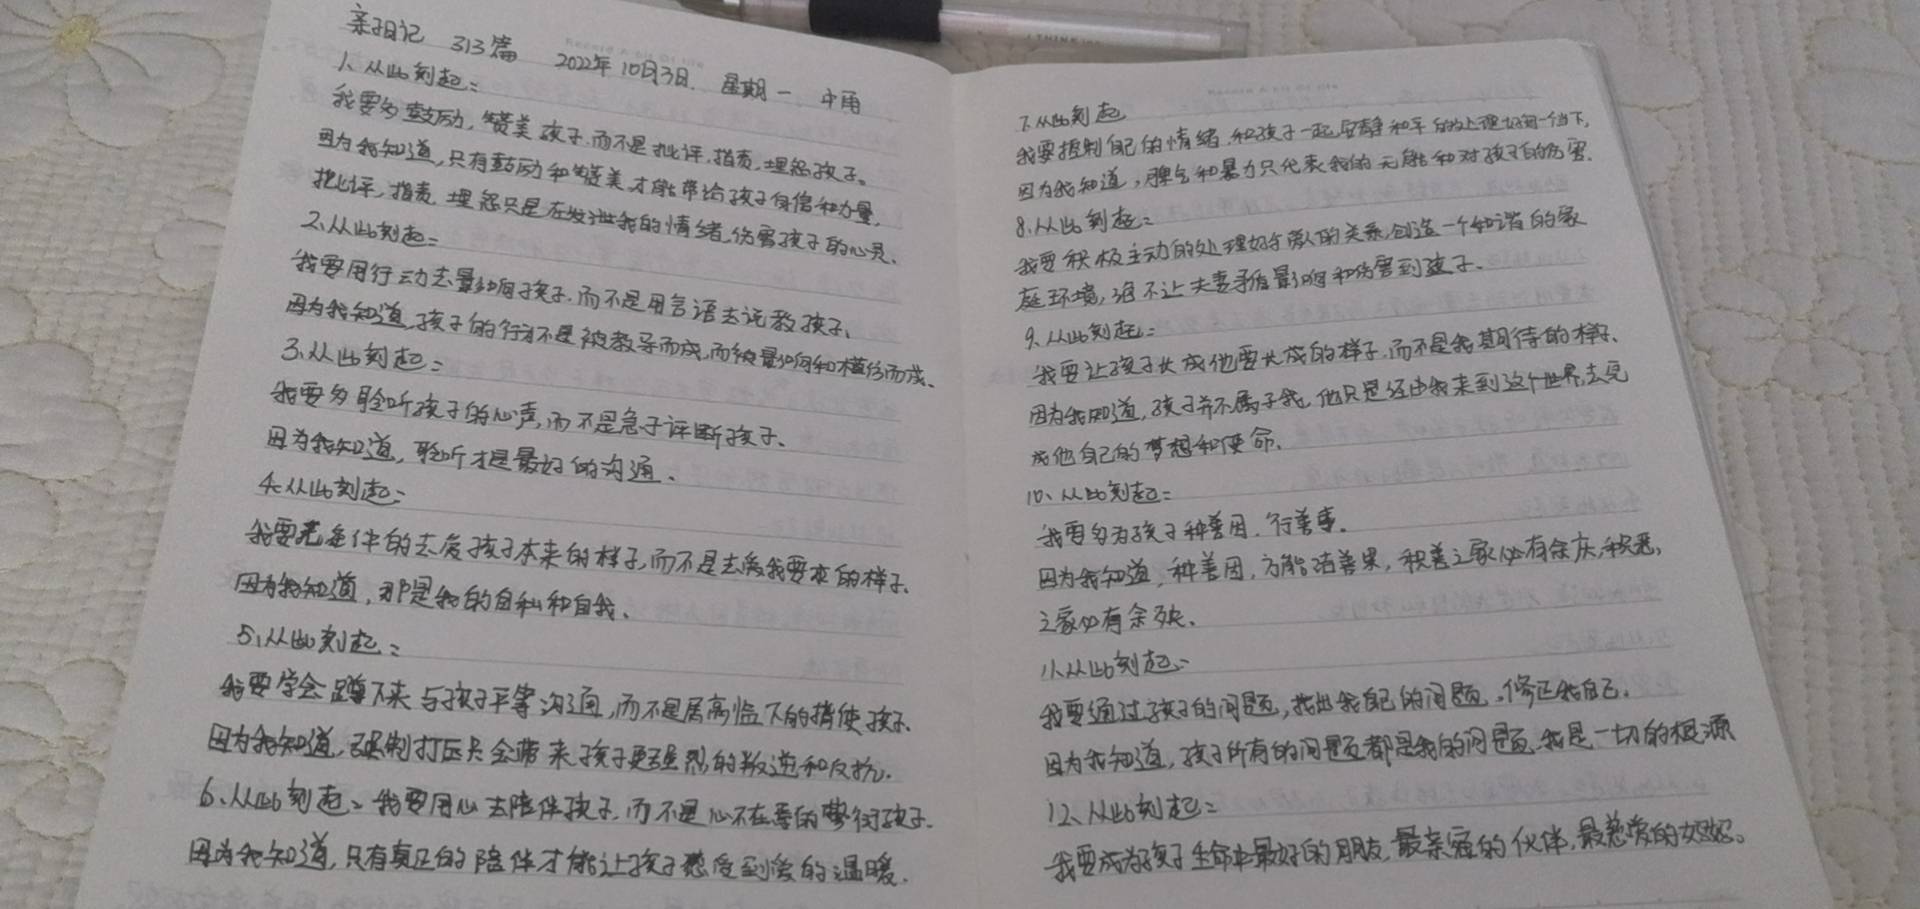 亲子日记 313篇 2022年10月3日. 星期一 中雨
1、从此刻起：
我要多鼓励，赞美孩子.而不是批评.指责.埋怨孩子。
因为我知道，只有鼓励和赞美.才能带给孩子自信和力量,
批评，指责，埋怨只是在发泄我的情绪.伤害孩子的心灵、
2、从此刻起：
我要用行动去影响孩子.而不是用言语去说教孩子、
因为我知道,孩子的行为不是被教导而成,而被影响和模仿而成、
3、从此刻起：
我要多聆听孩子的心声,而不是急于评断孩子、
因为我知道，聆听才是最好的沟通、
4、从此刻起：
我要无条件的去爱孩子本来的样子,而不是去爱我要求的样子、
因为我知道，那是我的自私和自我、
5、从此刻起：
我要学会蹲下来与孩子平等沟通,而不是居高临下的指使孩子、
因为我知道，强制打压只会带来孩子更强烈的叛逆和反抗.
6、从此刻起：我要用心去陪伴孩子.而不是心不在焉的敷衍孩子.
因为我知道,只有真正的陪伴才能让孩子感受到爱的温暖.
7、从此刻起
我要控制自己的情绪.和孩子一起安静和平的处理好每一个当下,
因为我知道，脾气和暴力只代表我的无能和对孩子的伤害.
8、从此刻起：
我要积极主动的处理好与家人的关系,创造一个和谐的家
庭环境，绝不让夫妻矛盾影响和伤害到孩子.
9、从此刻起：
我要让孩子长成他要长成的样子.而不是我期待的样子、
因为我知道，孩子并不属于我，他只是经由我来到这个世界,去完
成他自己的梦想和使命、
10、从此刻起：
我要多为孩子种善因.行善事.
因为我知道，种善因,方能结善果，积善之家必有余庆,积恶,
之家必有余殃、
11、从此刻起：
我要通过孩子的问题,找出我自己的问题.修正我自己.
因为我知道，孩子所有的问题都是我的问题.我是一切的根源
12、从此刻起：
我要成为孩子生命中最好的朋友,最亲密的伙伴,最慈爱的妈妈。